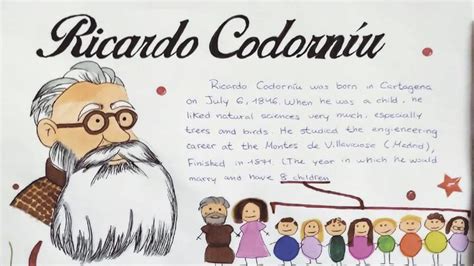 Ricardo Codorníu
Ricardo Codorníu was born in Cartagena
on July 6, 1846. When he was a child, he
liked natural sciences very much, especially
trees and birds. He studied the engineering
career at the Montes de Villaviciosa (Madrid),
Finished in 1871. (The year in which he would
marry and have 8 children